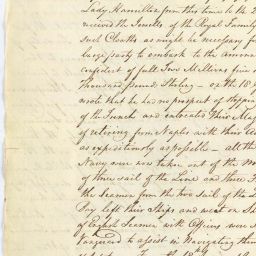 Lady Hamilton from this time to the 2
received the Jewells of the Royal Family
such Cloaths as might be necessary f
large party to embark to the amoun
confident of full Two Millions five
Thousand pound Sterling – on the 18
wrote that he has no prospect of stopping
of the French and entreated their Maj
of retiring from Naples with their
as expeditiously as possible – all the
Navy were now taken out of the M
of three sail of the Line and three
the Seamen from the two sail of the L
Bay left their Ships and went on Sh
of English Seamen with Officers were s
Vanguard to assist in Navigating them